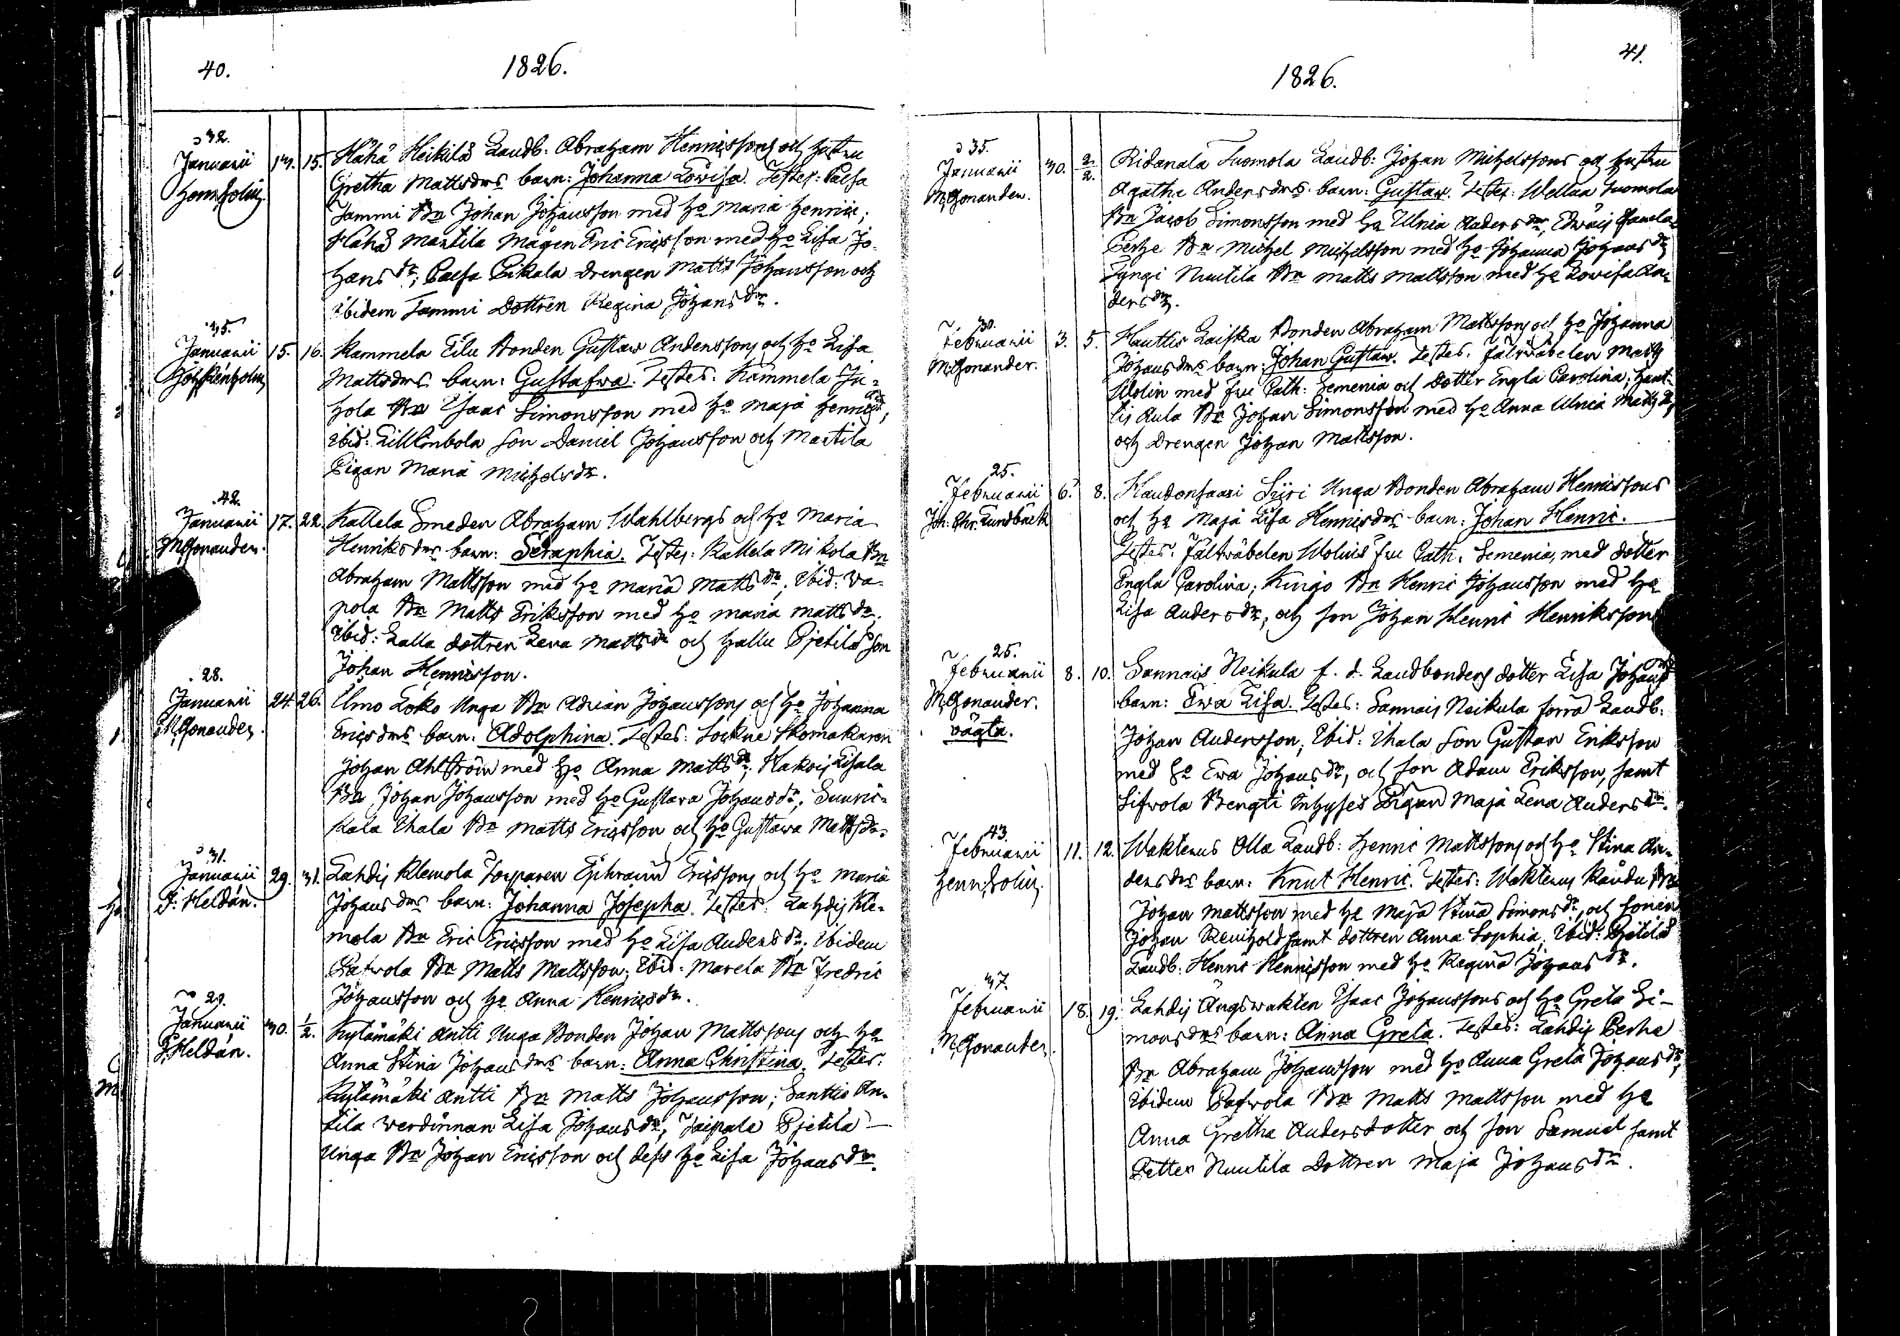 40.
1826.
32.
Januarii 14. 15. Hähä Heikilä Landb: Abraham Henricssons och hustru
Henr. Holm. Gretha Mattsdrs barn: Johanna Lowisa. Testes: Caesa
Tammi Bn Johan Johansson med ho Maria Henrics;
Hähä Martila Mågen Eric Ericsson med ho Lisa Jo-
hansdr, Caesa Pikala drengen Matts Johansson och
ibidem Tammi Dottren Regina Johansdr.
35.
Januarii 15. 16. Kammela Eilu Bonden Gustaw Anderssons och ho Lisa
Mattsdrs barn: Gustafwa. Testes: Kammela Ju-
hola Bn Isaac Simonsson med ho Maja Henricsdr,
ibid: Lillimbola son Daniel Johansson och Martila
Pigan Maria Michelsdr.
42.
Januarii 17. 22. Kallela Smeden Abraham Wahlbergs och ho Maria
M. Gonander. Henriksdrs barn: Seraphia. Testes: Kallela Mikola Bn
Abraham Mattsson med ho Maria Mattsdr, Ibid: Wa-
pola Bn Matts Eriksson med ho Maria Mattsdr.
Ibid: Lalla dottren Lena Mattsdr och Hallu Pjetilä Son
Johan Henricsson.
28.
Januarii 24. 26. Elmo Loko Unga Bn Adrian Johanssons och ho Johanna
M. Gonander. Ericsdrs barn: Adolphina. Testes: Sockne Skomakaren
Johan Ahlström med ho Anna Mattsdr, Kakois Lisala
Bn Johan Johansson med ho Gustava Johansdr, Suuris-
kala Uhala Bn Matts Ericsson och ho Gustawa Mattsdr.
31.
Januarii 29. 31. Lahdis Klemola Torparen Ephraim Ericssons och ho Maria
F: Heldán. Johansdrs barn: Johanna Josepha. Testes: Lahdis Kle-
mola Bn Eric Ericsson med ho Lisa Andersdr, Ibidem
Patrola Bn Matts Mattsson, Ibid: Marela Bn Fredric
Johansson och ho Anna Henricsdr.
29.
Januarii 30. 1/2. Kylämäki Antti Unga Bonden Johan Mattssons och ho
F. Heldán. Anna Stina Johansdrs barn: Anna Christina. Testes:
Kylämäki Antti Bn Matts Johansson; Santtis An-
tila werdinnan Lisa Johansdr, Jaipala Pjetilä
Unga Bn Johan Ericsson och dess ho Lisa Johansdr.
41.
1826.
35.
Januarii 30. 2/2. Ridanala Tuomola Landb: Johan Michelssons och hustru
M. Gonander. Agatha Andersdrs barn: Gustaw. Testes: Wellua Tuomola
Bn Jacob Simonsson med ho Ulnia Andersdr,
Perhe Bn Michel Michelsson med ho Johanna Johansdr
Nuutila Bn Matts Mattsson med ho Lowisa An-
dersdr.
30.
Februarii 3. 5. Hauttis Laiska Bonden Abraham Mattssons och ho Johanna
M. Gonander. Johansdrs barn: Johan Gustaw. Testes: Fältwäbelen Matts
Wolin med fru Cath: Semenia och dotter Engla Carolina; Haut-
tis Aula Bn Johan Simonsson med ho Anna Ulnia Mattsdr,
och drengen Johan Mattsson.
25.
Februarii 6. 8. Kaudonsaari Siiri Unga Bonden Abraham Henricssons
Joh: Chr. Lundbäck och ho Maja Lisa Henricsdrs barn: Johan Henric.
Testes: Fältwäbelen Wolins fru Cath. Semenia, med dotter
Engla Carolina; Knigo Bn Henric Johansson med ho
Lisa Andersdr, och son Johan Henric Henriksson
25.
Februarii 8. 10. Sannais Neikula f. d. Landbondens dotter Lisa Johansdr
M. Gonander. barn: Ewa Lisa. Testes: Sannais Neikula förra Landb:
oägta. Johan Andersson, Ibid: Uhala Son Gustav Eriksson
med ho Ewa Johansdr, och son Adam Eriksson, samt
Sifwola Bengti Inhyses Pigan Maja Lena Andersdr.
43.
Februarii 11. 12. Waktenus Olla Landb: Henric Mattssons och ho Stina An-
Henr. Holm. dersdrs barn: Knut Henric. Testes: Waktenus Kändu Bn
Johan Mattsson med ho Maja Stina Simonsdr, och sonen
Johan Reinhold samt dottren Anna Sophia, Ibid: Pjetilä
Landb: Henric Henricsson med ho Regina Johansdr.
37.
Februarii 18. 19. Lahdis Ängswakten Isaac Johanssons och ho Greta Si-
M. Gonander. monsdrs barn: Anna Greta. Testes: Lahdis Perhe
Bn Abraham Johansson med ho Anna Greta Johansdr,
Ibidem Patrola Bn Matts Mattsson med ho
Anna Gretha Andersdotter och son Samuel samt
Petter Nuutila Dottren Maja Johansdr.